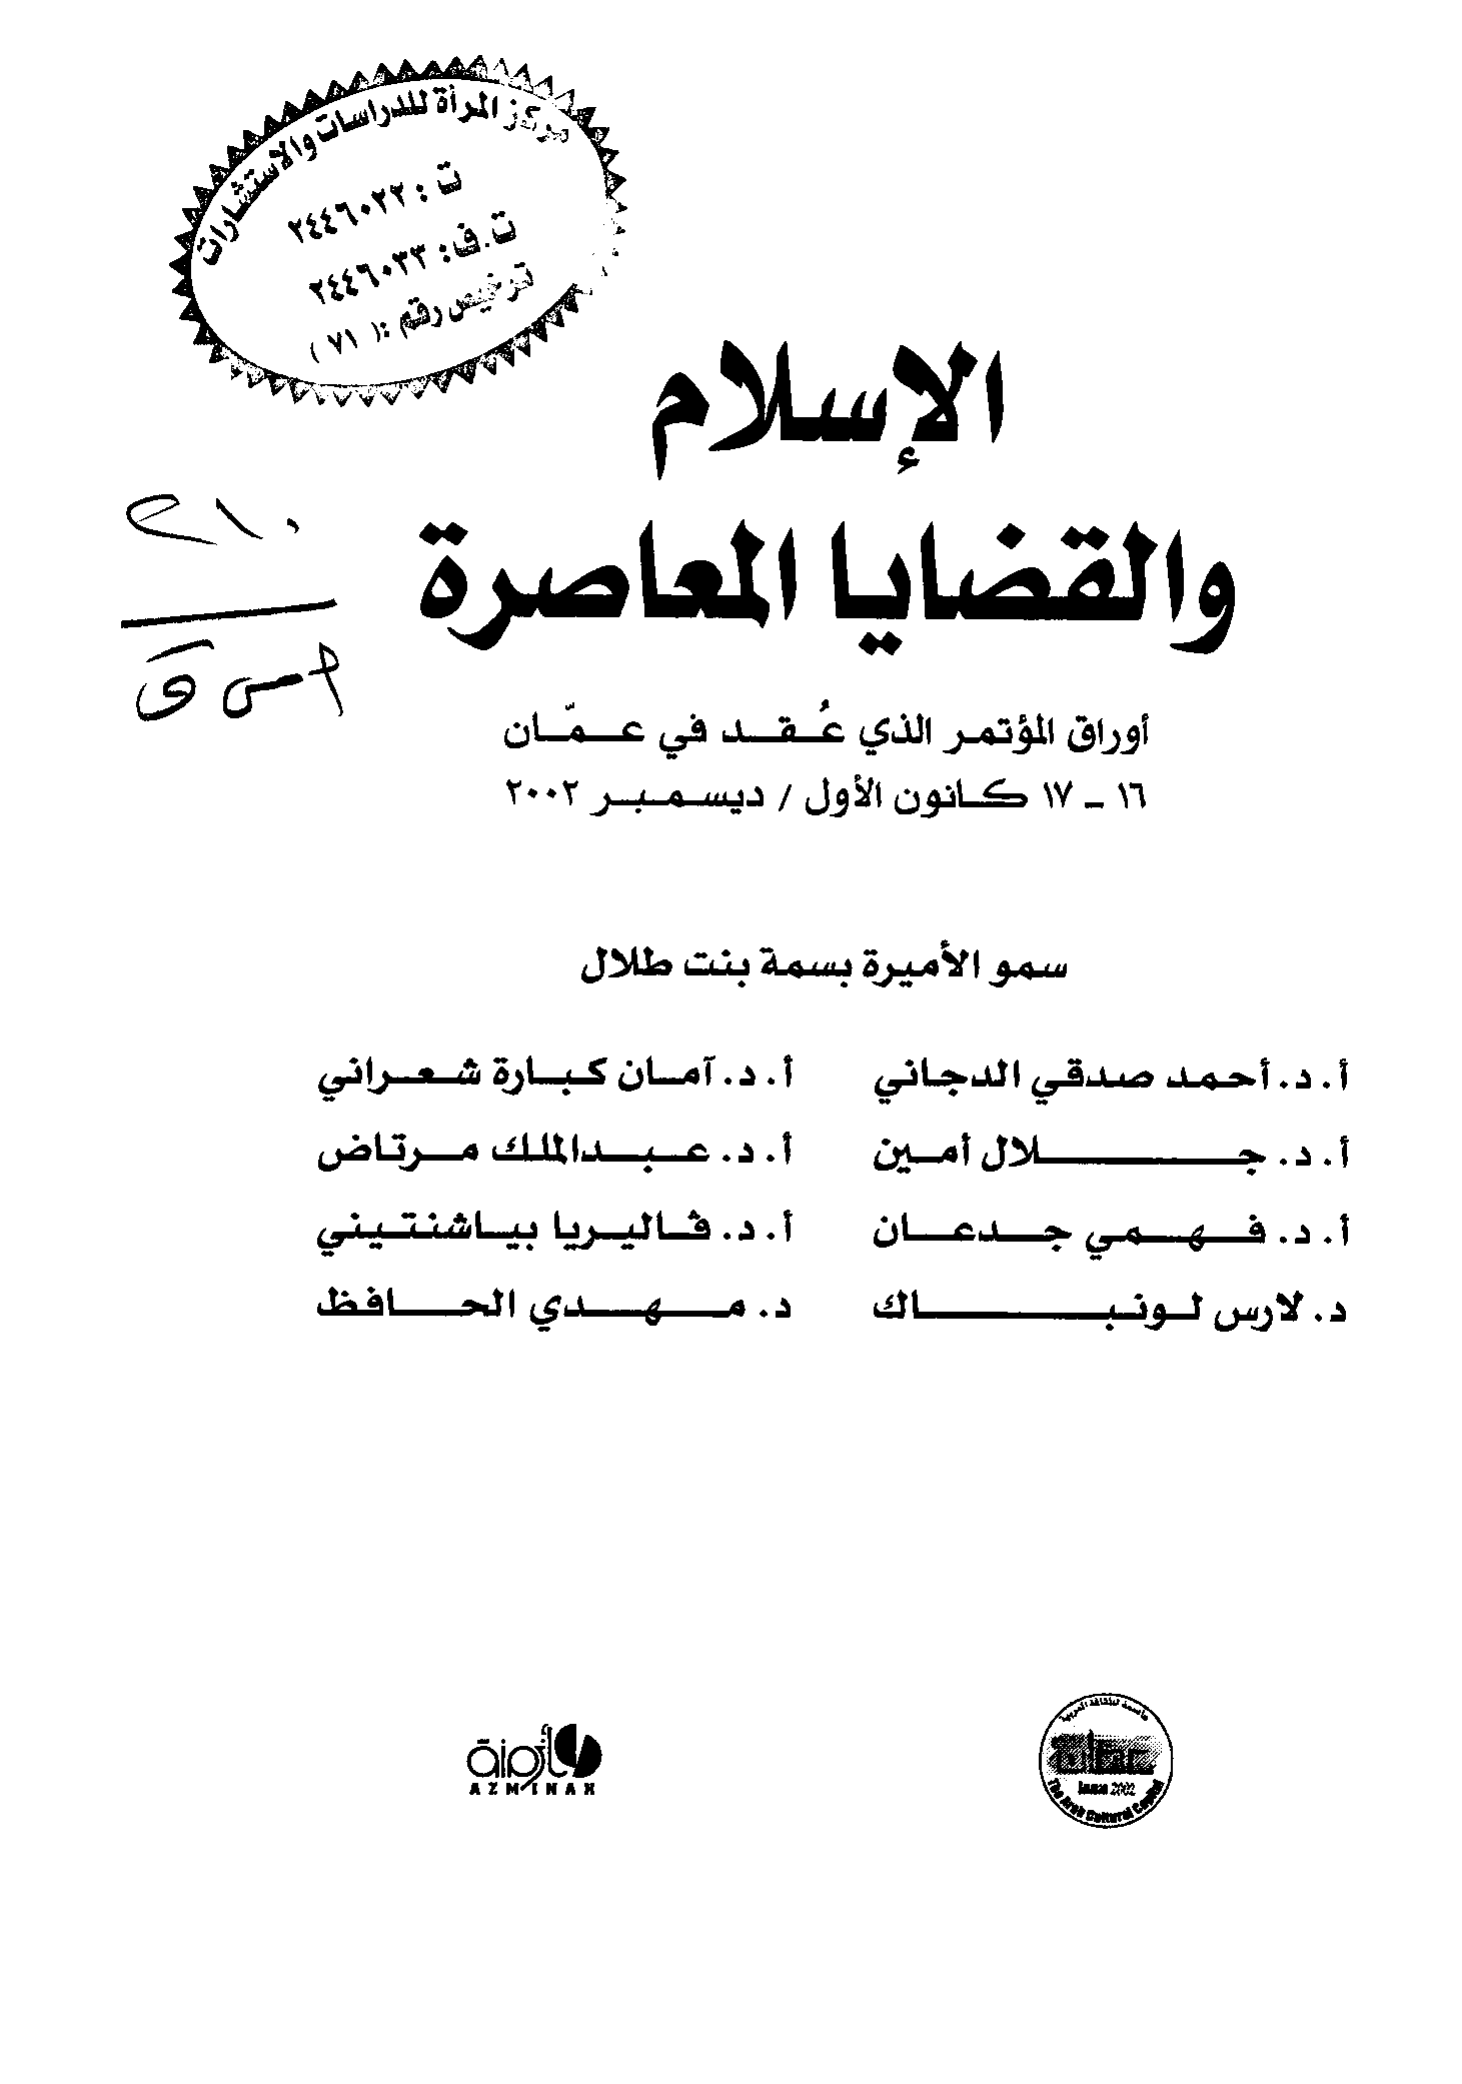 مركز المرأة للدراسات والاستشارات
ت : ٢٤٤٦٠٢٢
ت.ف: ٢٤٤٦٠٣٣
ترخيص رقم :( ٧١ )
الإسلام
والقضايا المعاصرة
٢١٠
أوراق المؤتمر الذي عُقد في عمّان
١٦ - ١٧ كانون الأول / ديسمبر ٢٠٠٢
سمو الأميرة بسمة بنت طلال
أ. د. أحمد صدقي الدجاني
أ. د. آمان كبارة شعراني
أ. د. جلال أمين
أ. د. عبدالملك مرتاض
أ. د. فهمي جدعان
أ. د. ڤاليريا بياشنتيني
د. لارس لونباك
د. مهدي الحافظ
أزمنة
AZMINAH
عاصمة للثقافة العربية
عمان
2002
The Arab Cultural Capital